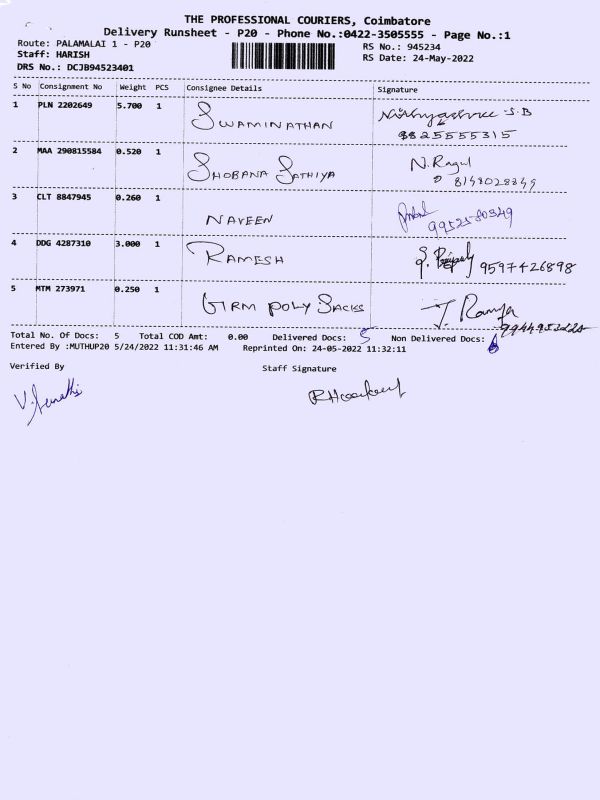 THE PROFESSIONAL COURIERS, Coimbatore
Delivery Runsheet - P20 - Phone No.:0422-3505555 - Page No.:1
Route: PALAMALAI 1 - P20 RS No.: 945234
Staff: HARISH RS Date: 24-May-2022
DRS No.: DCJB94523401
S No Consignment No Weight PCS Consignee Details Signature
1 PLN 2202649 5.700 1 SWAMINATHAN S.B
9825555315
2 MAA 290815584 0.520 1 SHOBANA SATHIYA N. Ragul
8148028849
3 CLT 8847945 0.260 1 NAVEEN
4 DDG 4287310 3.000 1 RAMESH 9597426898
5 MTM 273971 0.250 1 GTRM POLY SACKS J. Ramya
Total No. Of Docs: 5 Total COD Amt: 0.00 Delivered Docs: 5 Non Delivered Docs:
Entered By :MUTHUP20 5/24/2022 11:31:46 AM Reprinted On: 24-05-2022 11:32:11
Verified By Staff Signature